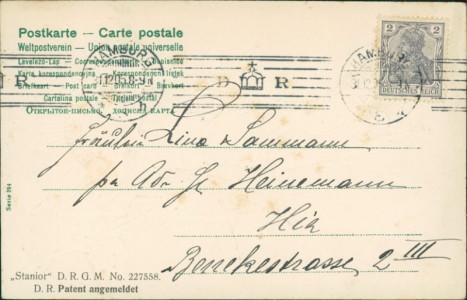 Postkarte – Carte postale
Weltpostverein – Union postale universelle
Levelező-Lap – Correspondenzkarte – Dopisnice
Karta korespondencyjna Korespondenční lístek
Brefkaart – Post card – Brefkort – Brevkort
Cartolina postale – Tarjeta postal
Открытое письмо.
HAMBURG
8-9 N
D R
HAMBURG
2 2
DEUTSCHES REICH
Fräulein Lina Sammann
pr Adr Gr Heinemann
Hier
Benekestrasse 2 III
Serie 294
„Stanior" D. R. G. M. No. 227558.
D. R. Patent angemeldet